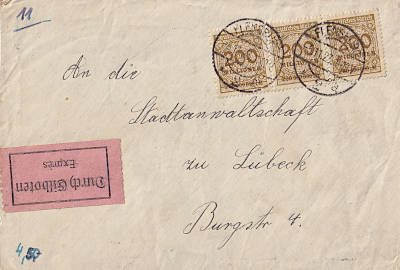 11
FLENSBURG
200
200
200
An die
Stadtanwaltschaft
zu Lübeck
Burgstr 4.
Durch Eilboten
Exprès
4,50